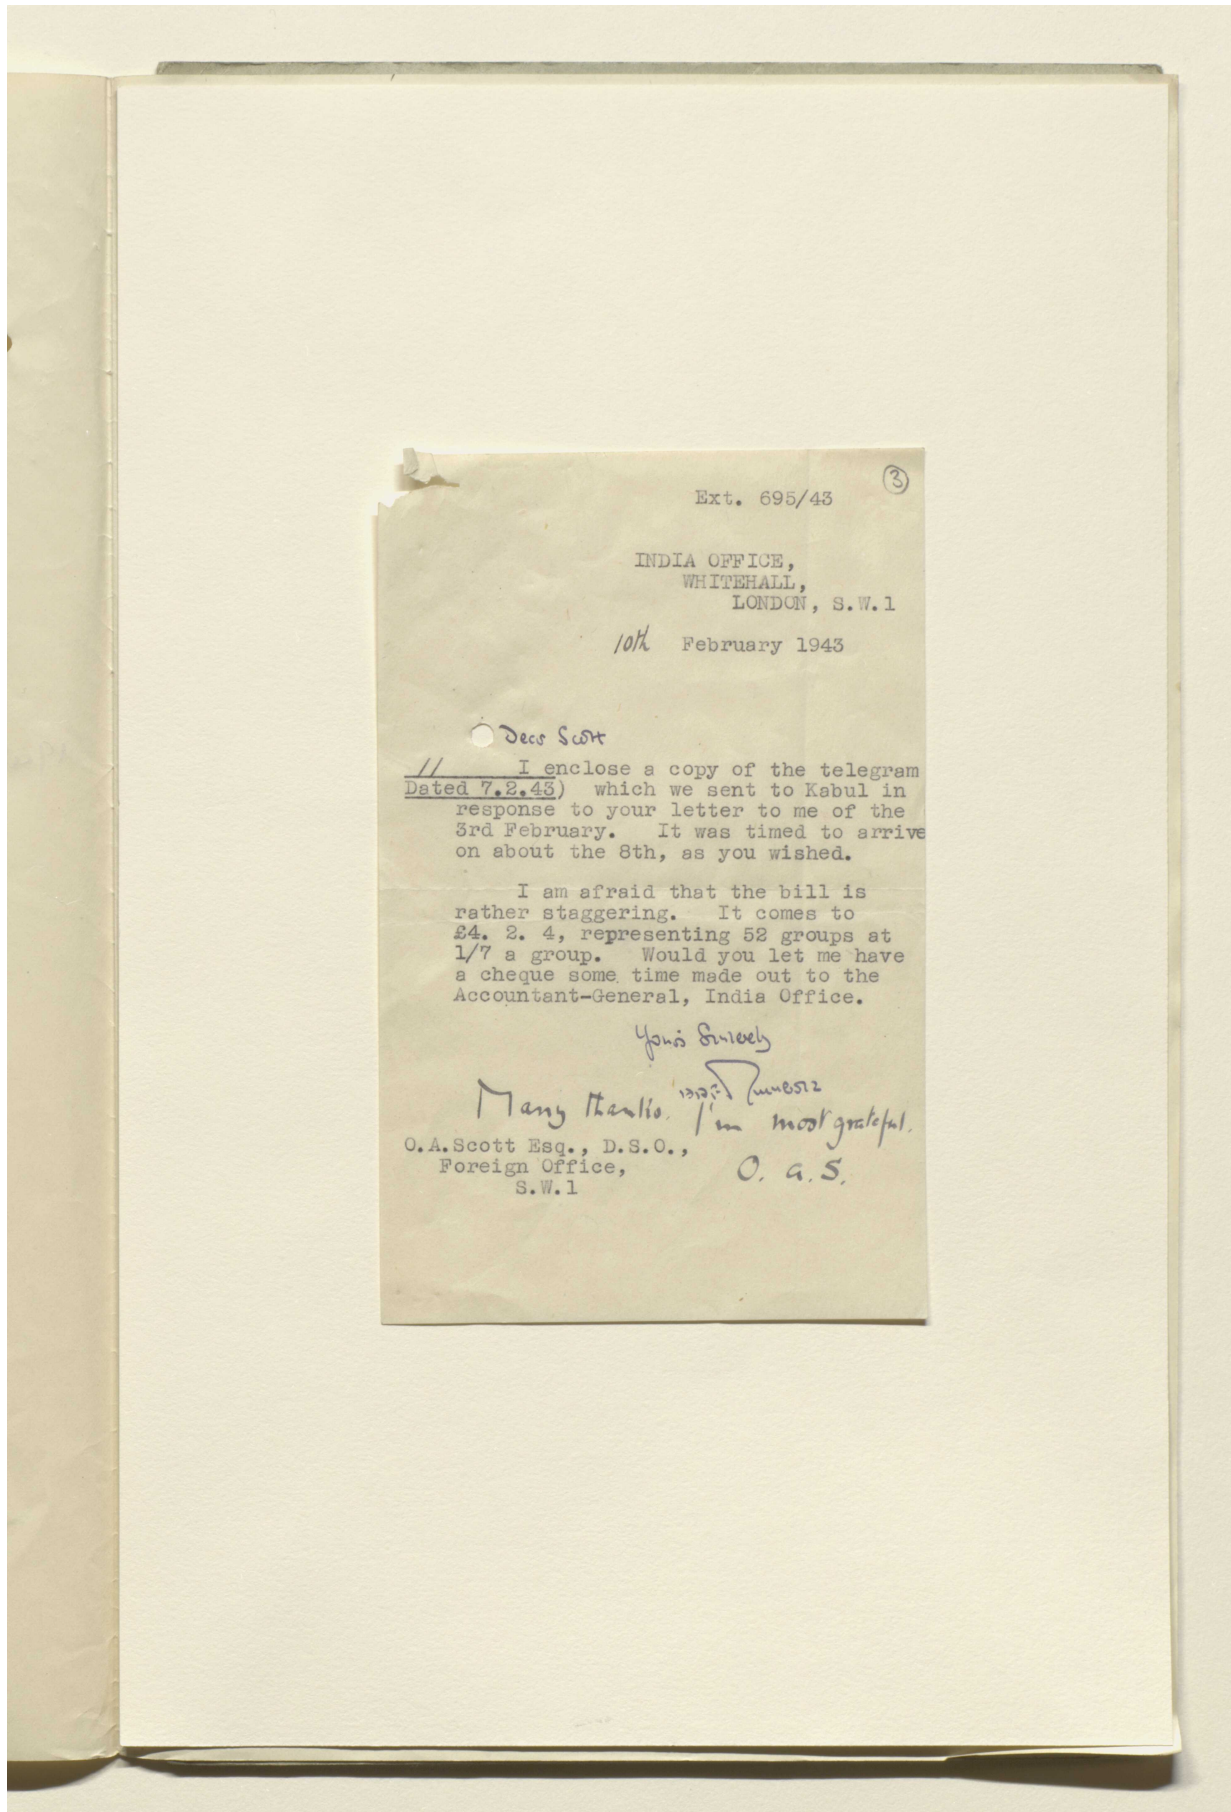 3
Ext. 695/43
INDIA OFFICE,
WHITEHALL,
LONDON, S.W.1
10th February 1943
Dear Scott
// I enclose a copy of the telegram
Dated 7.2.43) which we sent to Kabul in
response to your letter to me of the
3rd February. It was timed to arrive
on about the 8th, as you wished.
I am afraid that the bill is
rather staggering. It comes to
£4. 2. 4, representing 52 groups at
1/7 a group. Would you let me have
a cheque some time made out to the
Accountant-General, India Office.
Yours Sincerely
Many thanks. I'm most grateful.
O.A.Scott Esq., D.S.O.,
Foreign Office,
S.W.1
O. A. S.